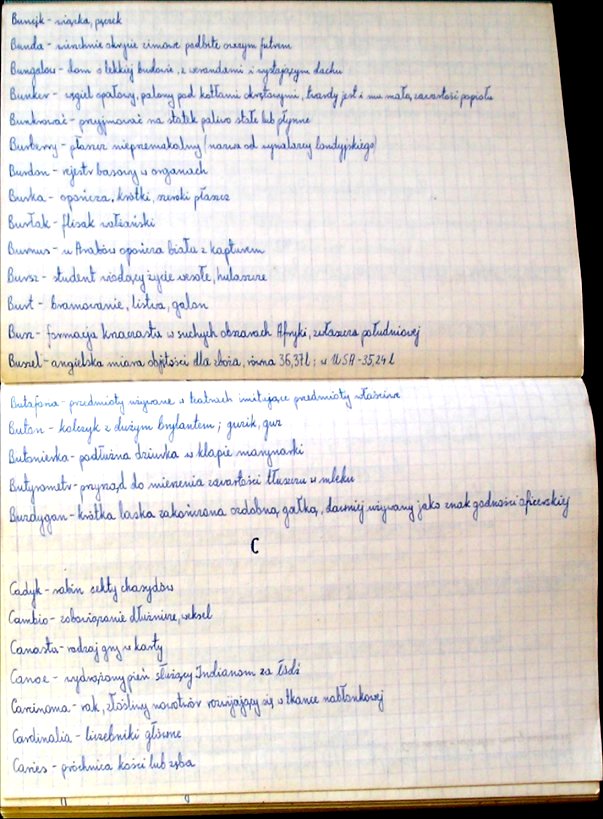 Buncjk - wiązka, pęczek
Bunda - wierzchnie okrycie zimowe podbite owczym futrem
Bungalow - dom o lekkiej budowie, z werandami i wystającym dachu
Bunkier - węgiel opałowy, palony pod kotłami okrętowymi, twardy jest i ma małą zawartość popiołu
Bunkrować - przyjmować na statek paliwo stałe lub płynne
Burberry - płaszcz nieprzemakalny (nazwa od wynalazcy londyjskiego)
Burdon - rejestr basowy w organach
Burka - opończa, krótki, szeroki płaszcz
Burłak - flisak wołżański
Burnus - u Arabów opończa biała z kapturem
Bursz - student wiodący życie wesołe, hulaszcze
Burt - bramowanie, listwa, galon
Busz - formacja krzaczasta w suchych obszarach Afryki, zwłaszcza południowej
Buszel - angielska miara objętości dla zboża, równa 36,37 l; w USA - 35,24 l
Butaforia - przedmioty używane w teatrach imitujące przedmioty właściwe
Buton - kolczyk z dużym brylantem; guzik, guz
Butonierka - podłużna dziurka w klapie marynarki
Butyrometr - przyrząd do mierzenia zawartości tłuszczu w mleku
Buzdygan - krótka laska zakończona ozdobną gałką, dawniej używany jako znak godności oficerskiej
C
Cadyk - rabin sekty chasydów
Cambio - zobowiązanie dłużnicze, weksel
Canasta - rodzaj gry w karty
Canoe - wydrążony pień służący Indianom za łódź
Carcinoma - rak, złośliwy nowotwór rozwijający się w tkance nabłonkowej
Cardinalia - liczebniki główne
Caries - próchnica kości lub zęba